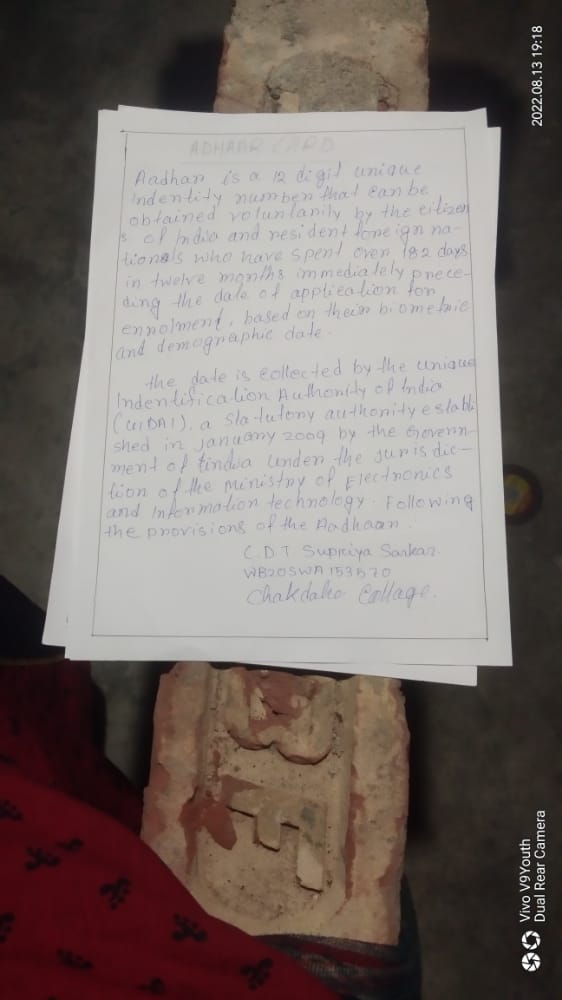 ADHAAR CARD
Aadhar is a 12 digit unique
indentity number that can be
obtained voluntarity by the citizen
s of India and resident foreign na-
tionals who have spent over 182 days
in twelve months immediately prece-
ding the date of application for
ennolment, based on their biometric
and demographic date.
the date is collected by the unique
Indentification Authority of India
(UIDAI), a statutory authority establi
shed in january 2009 by the Govern-
ment of Eindia under the jurisdic-
tion of the Ministry of Electronics
and Information technology. Following
the provisions of the Aadhaar.
C.D.T Supriya Sarkar.
WB20SWA153570
Chakdaho Collage.
2022.08.13 19:18
Vivo V9Youth
Dual Rear Camera